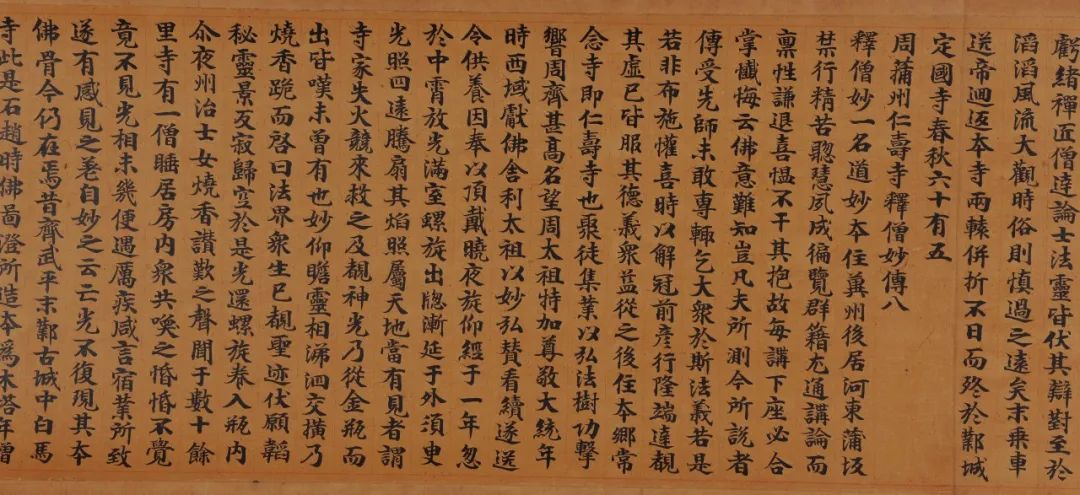 虧緒禪匠僧達論士法靈皆伏其辯對至於
滔滔風流大觀時俗則慎過之遠矣末乘車
送帝迴返本寺兩轅併折不日而終於鄴城
定國寺春秋六十有五
周蒲州仁壽寺釋僧妙傳八
釋僧妙一名道妙本住冀州後居河東蒲坂
禁行精苦聦慧夙成徧覽群籍尢通講論而
禀性謙退喜慍不干其抱故每講下座必合
掌懺悔云佛意難知豈凡夫所測今所說者
傳受先師未敢專輙乞大衆於斯法義若是
若非布施懽喜時以解冠前彥行隆端達覩
其虛已皆服其德義衆益從之後住本鄉常
念寺即仁壽寺也聚徒集業以弘法樹功擊
響周齊甚髙名望周太祖特加尊敬大統年
時西域獻佛舍利太祖以妙弘賛看續遂送
令供養因奉以頂戴曉夜旋仰經于一年忽
於中霄放光滿室螺旋出牎漸延于外須臾
光照四遠騰扇其焰照屬天地當有見者謂
寺家失火競來救之及覩神光乃從金瓶而
出皆嘆未曾有也妙仰瞻靈相涕泗交橫乃
燒香跪而啓曰法界衆生已覩聖迹伏願韜
秘靈景反寂歸空於是光還螺旋卷入瓶内
尒夜州治士女燒香讚歎之聲聞于數十餘
里寺有一僧睡居房内衆共喚之惛惛不覺
竟不見光相未幾便遇厲疾咸言宿業所致
遂有感見之差自妙之云亡光不復現其本
佛骨今仍在焉昔齊武平末鄴古城中白馬
寺此是石趙時佛啚澄所造本爲木塔年僧